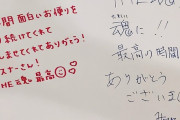 間面白いお便りを
り続けてくれて
ませてくれてありがとう!
スナーさん!
NE魂 最高
魂に!!
最高の時間
ありがとう
ございま